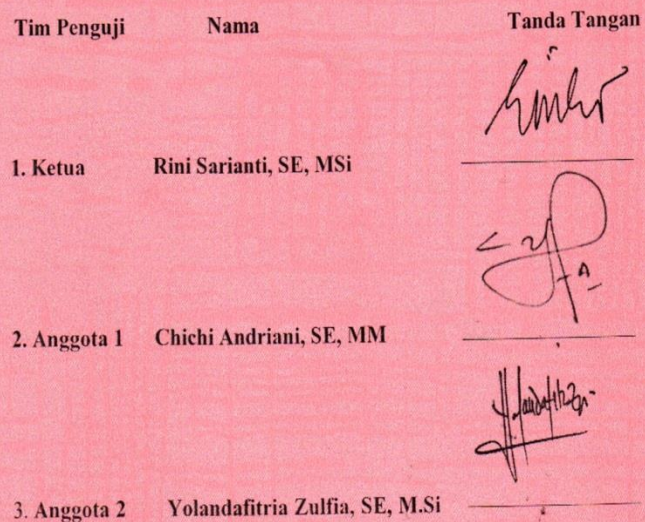 Tim Penguji Nama Tanda Tangan
1. Ketua Rini Sarianti, SE, MSi
2. Anggota 1 Chichi Andriani, SE, MM
3. Anggota 2 Yolandafitria Zulfia, SE, M.Si